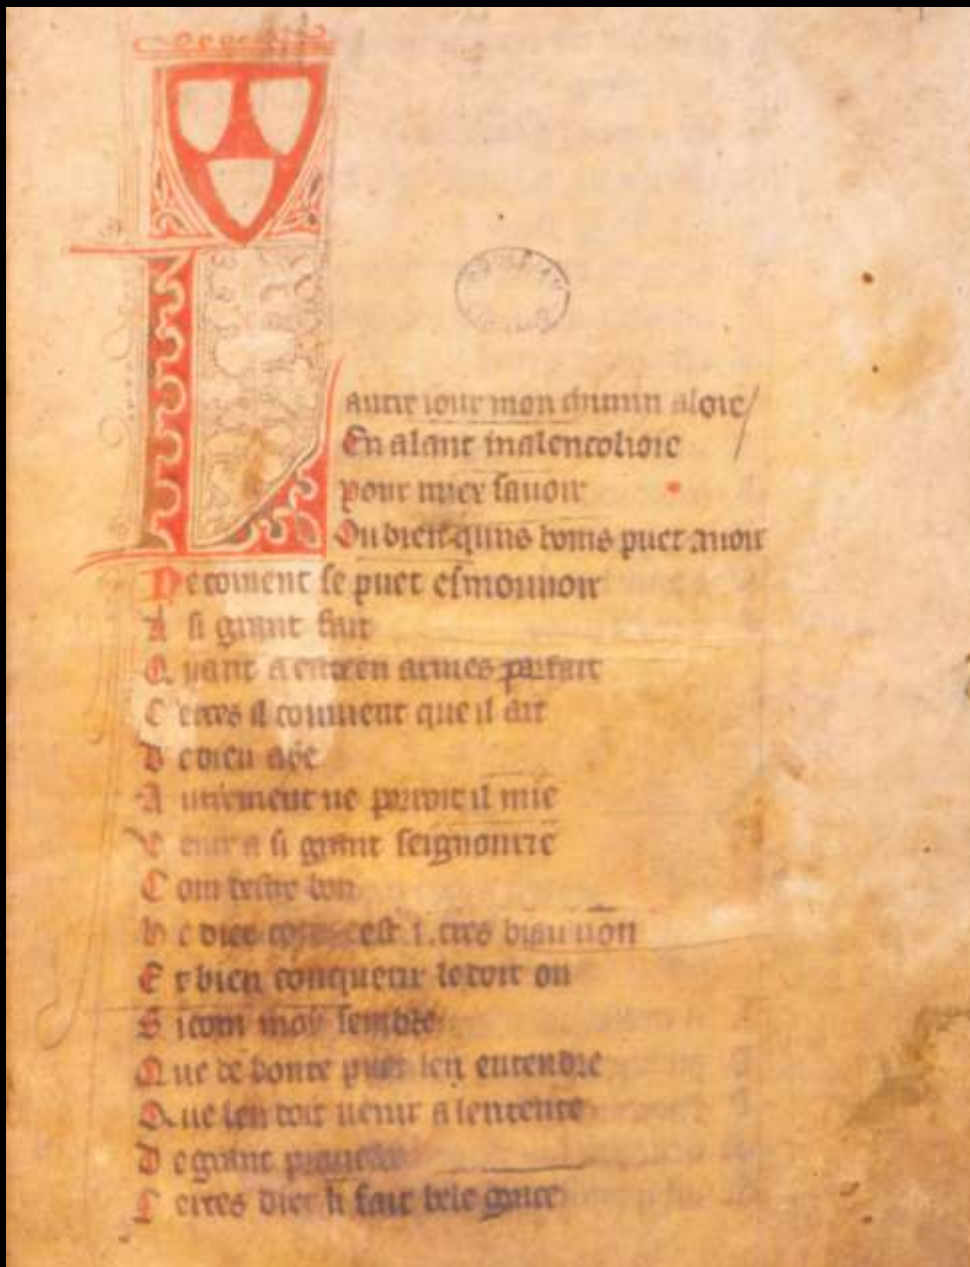 L autre iour mon chimin aloie
En alant malencolioie
pour miex sauoir
Du bien quns homs puet auoir
Ne coment se puet esmouuoir
A si grant fait
Quant a en armes parfait
Certes il conuient que il ait
De dieu aye
Autrement ne porroit il mie
Venir a si grant seignourie
Com destre bon
He diex est .i. tres biau non
Et bien conquerir le doit on
Si com moy semble
Que de bonte puet len entendre
Que len doit uenir a lentente
De grant
Certes diex li fait bele grace